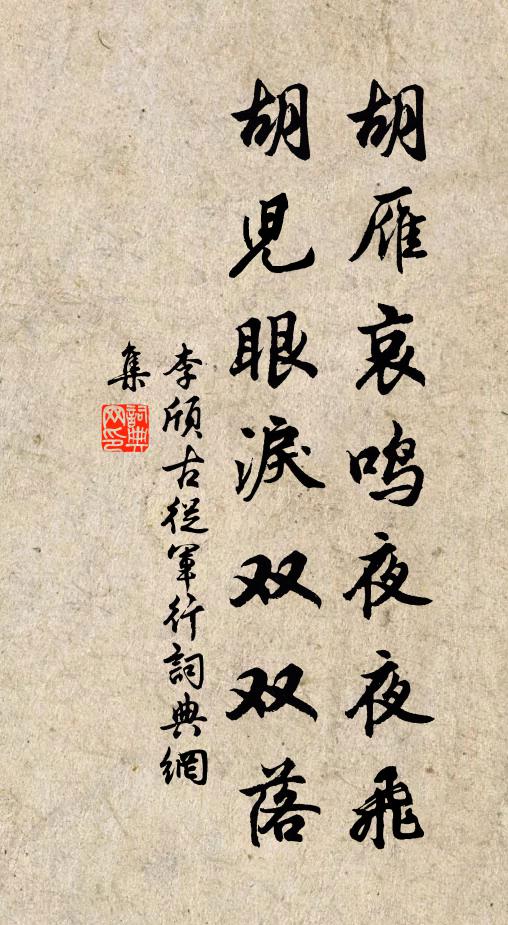 胡雁哀鸣夜夜飛
胡児眼淚双双落
李頎古從軍行詞典網
集
詞典
网印